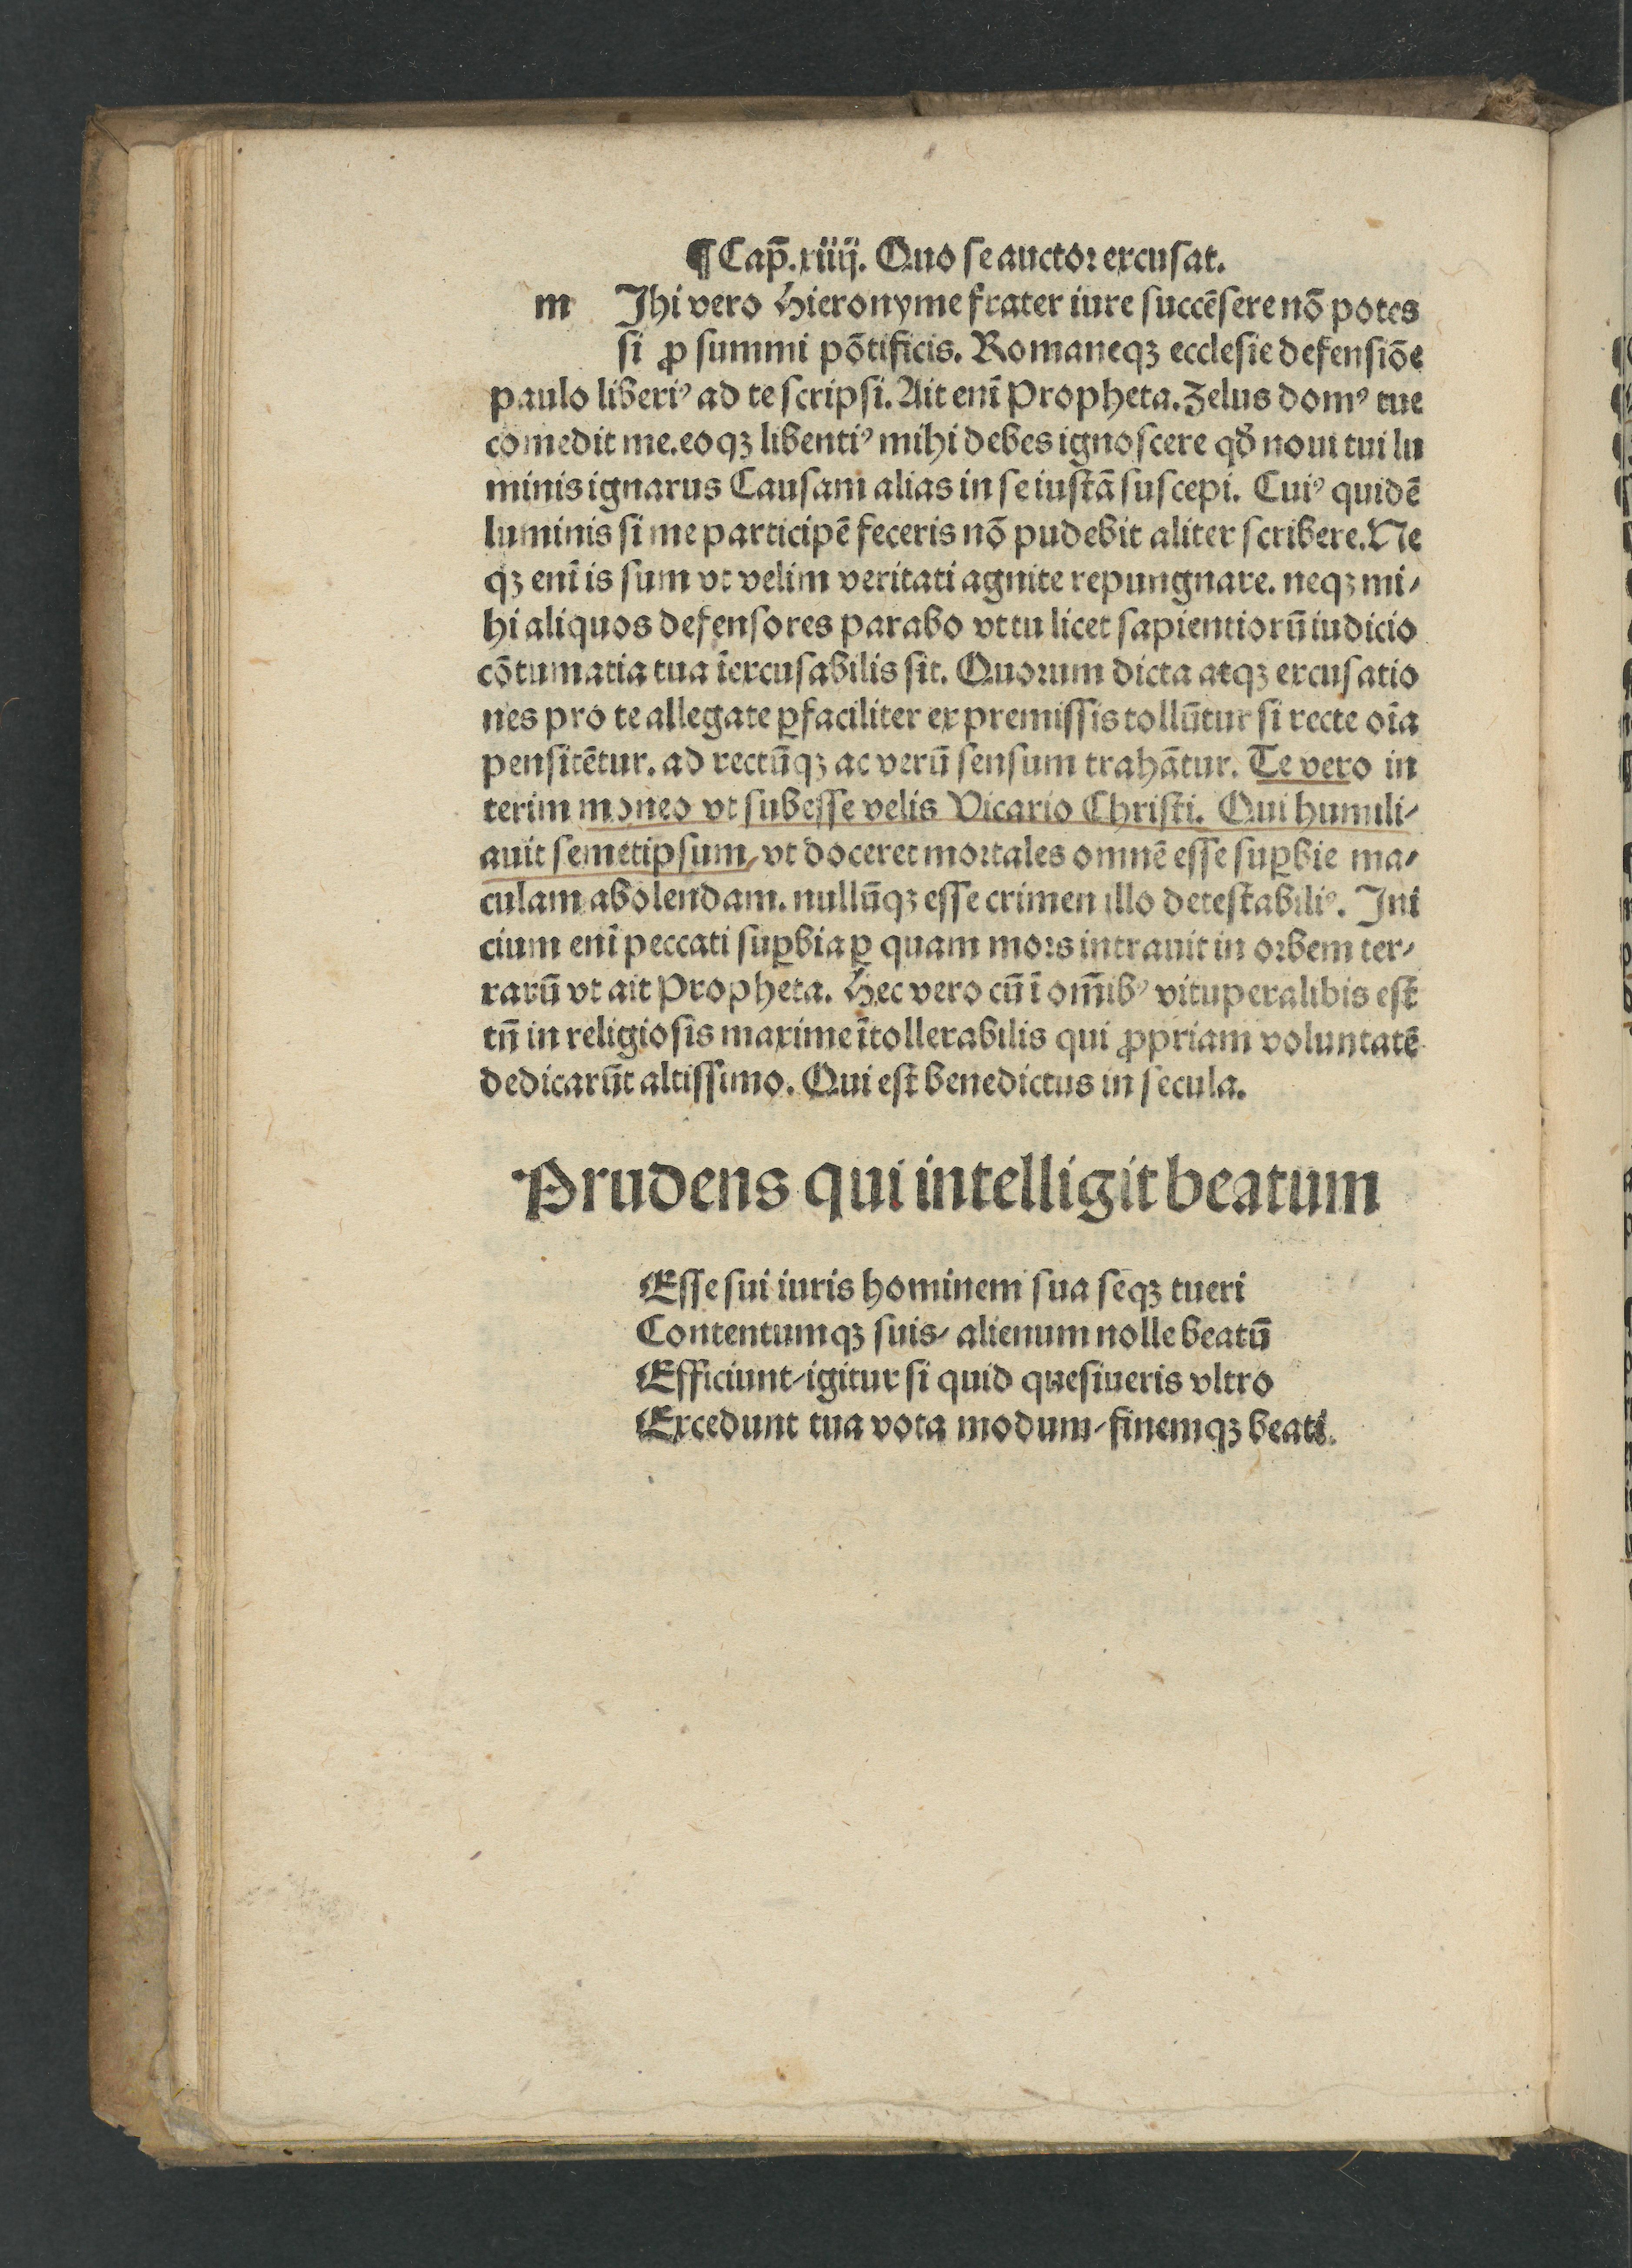 ¶ Cap̃. xiiij. Quo se auctor excusat.
m Ihi vero Hieronyme frater iure succēsere nō potes
si ꝓ summi pōtificis. Romaneqꝫ ecclesie defensiōe
paulo liberiꝰ ad te scripsi. Ait enī Propheta. Zelus domꝰ tue
comedit me. eoqꝫ libentiꝰ mihi debes ignoscere qð noui tui lu
minis ignarus Causam alias in se iustā suscepi. Cuiꝰ quidē
luminis si me participē feceris nō pudebit aliter scribere. Ne
qꝫ enī is sum vt velim veritati agnite repungnare. neqꝫ mi⸗
hi aliquos defensores parabo vt tu licet sapientiorū iudicio
cōtumatia tua īexcusabilis sit. Quorum dicta atqꝫ excusatio
nes pro te allegate ꝑfaciliter ex premissis tollūtur si recte oīa
pensitētur. ad rectūqꝫ ac verū sensum trahātur. Te vero in
terim moneo vt subesse velis Vicario Christi. Qui humili⸗
auit semetipsum/ vt doceret mortales omnē esse suꝑbie ma⸗
culam abolendam. nullūqꝫ esse crimen illo detestabiliꝰ. Ini
cium enī peccati suꝑbia ꝑ quam mors intrauit in orbem ter⸗
rarū vt ait Propheta. Hec vero cū ī om̄ibꝰ vituperalibis est
tn̄ in religiosis maxime ītollerabilis qui ꝓpriam voluntatē
dedicarūt altissimo. Qui est benedictus in secula.
Prudens qui intelligit beatum
Esse sui iuris hominem sua seqꝫ tueri
Contentumqꝫ suis/ alienum nolle beatū
Efficiunt/ igitur si quid quesiueris vltro
Excedunt tua vota modum/ finemqꝫ beati.